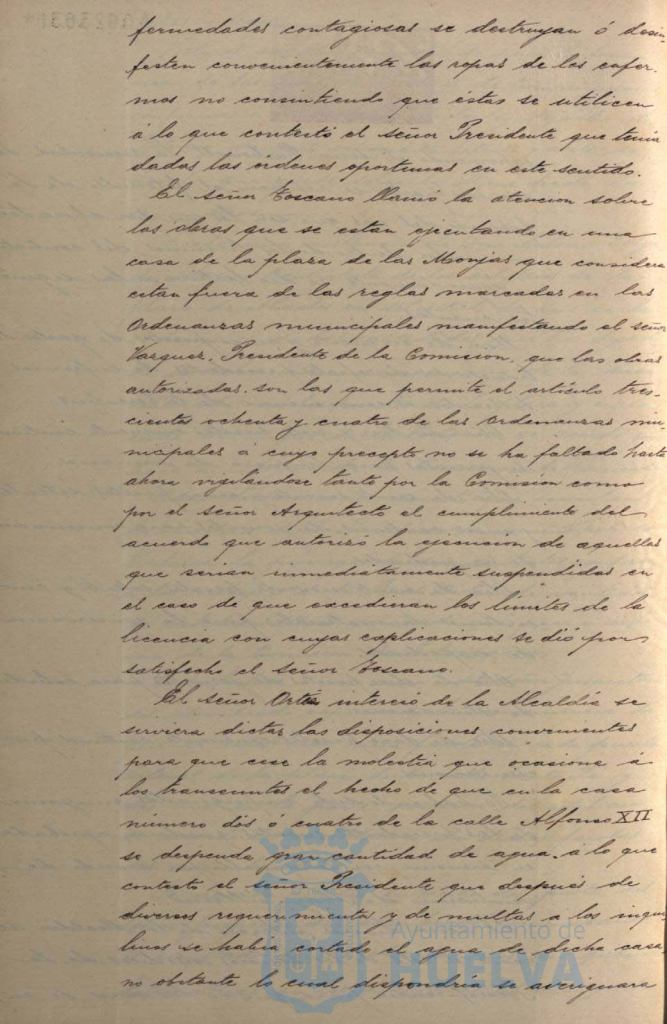 fermedades contagiosas se destruyan ó desin-
festen convenientemente las ropas de los enfer-
mos no consintiendo que éstas se utilicen
á lo que contestó el señor Presidente que tenia
dadas las órdenes oportunas en este sentido.
El señor Toscano llamó la atencion sobre
las obras que se estan ejecutando en una
casa de la plaza de las Monjas que considera
estan fuera de las reglas marcadas en las
Ordenanzas municipales manifestando el señor
Vazquez, Presidente de la Comision, que las obras
autorizadas son las que permite el artículo tres-
cientos ochenta y cuatro de las Ordenanzas mu-
nicipales á cuyo precepto no se ha faltado hasta
ahora vigilándose tanto por la Comision como
por el señor Arquitecto el cumplimiento del
acuerdo que autorizó la ejecucion de aquellas
que serian inmediatamente suspendidas en
el caso de que excedieran los límites de la
licencia con cuyas explicaciones se dió por
satisfecho el señor Toscano.
El señor Ortiz interesó de la Alcaldía se
sirviera dictar las disposiciones convenientes
para que cese la molestia que ocasiona á
los transeuntes el hecho de que en la casa
número dós ó cuatro de la calle Alfonso XII
se desprenda gran cantidad de agua, á lo que
contestó el señor Presidente que después de
diversos requerimientos y de multas a los inqui-
linos se habia cortado el agua de dicha casa,
no obstante lo cual dispondria se averiguara
Ayuntamiento de
HUELVA